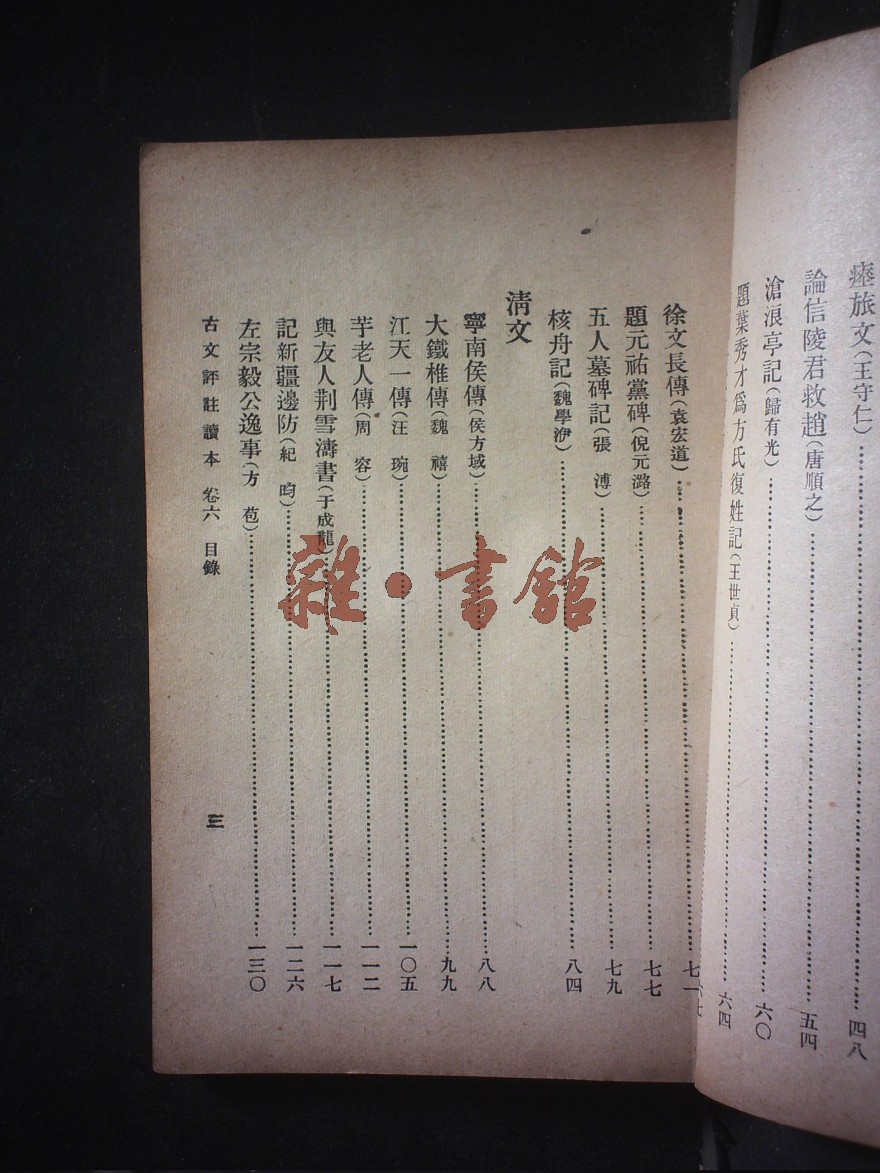 瘞旅文(王守仁)…………四八
論信陵君救趙(唐順之)…………五四
滄浪亭記(歸有光)…………六〇
題葉秀才爲方氏復姓記(王世貞)…………六四
六七
徐文長傳(袁宏道)…………七一
題元祐黨碑(倪元潞)…………七七
五人墓碑記(張 溥)…………七九
核舟記(魏學洢)…………八四
清文
寧南侯傳(侯方域)…………八八
大鐵椎傳(魏 禧)…………九九
江天一傳(汪 琬)…………一〇五
芋老人傳(周 容)…………一一二
與友人荆雪濤書(于成龍)…………一一七
記新疆邊防(紀 昀)…………一二六
左宗毅公逸事(方 苞)…………一三〇
古文評註讀本 卷六 目錄
三
雜·書館